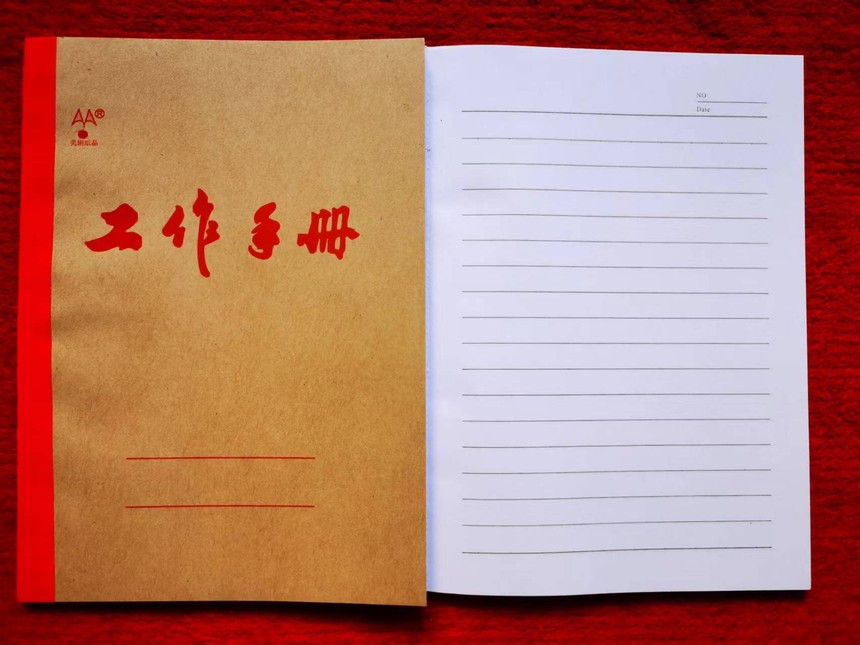 AA®
工作手册
NO
Date